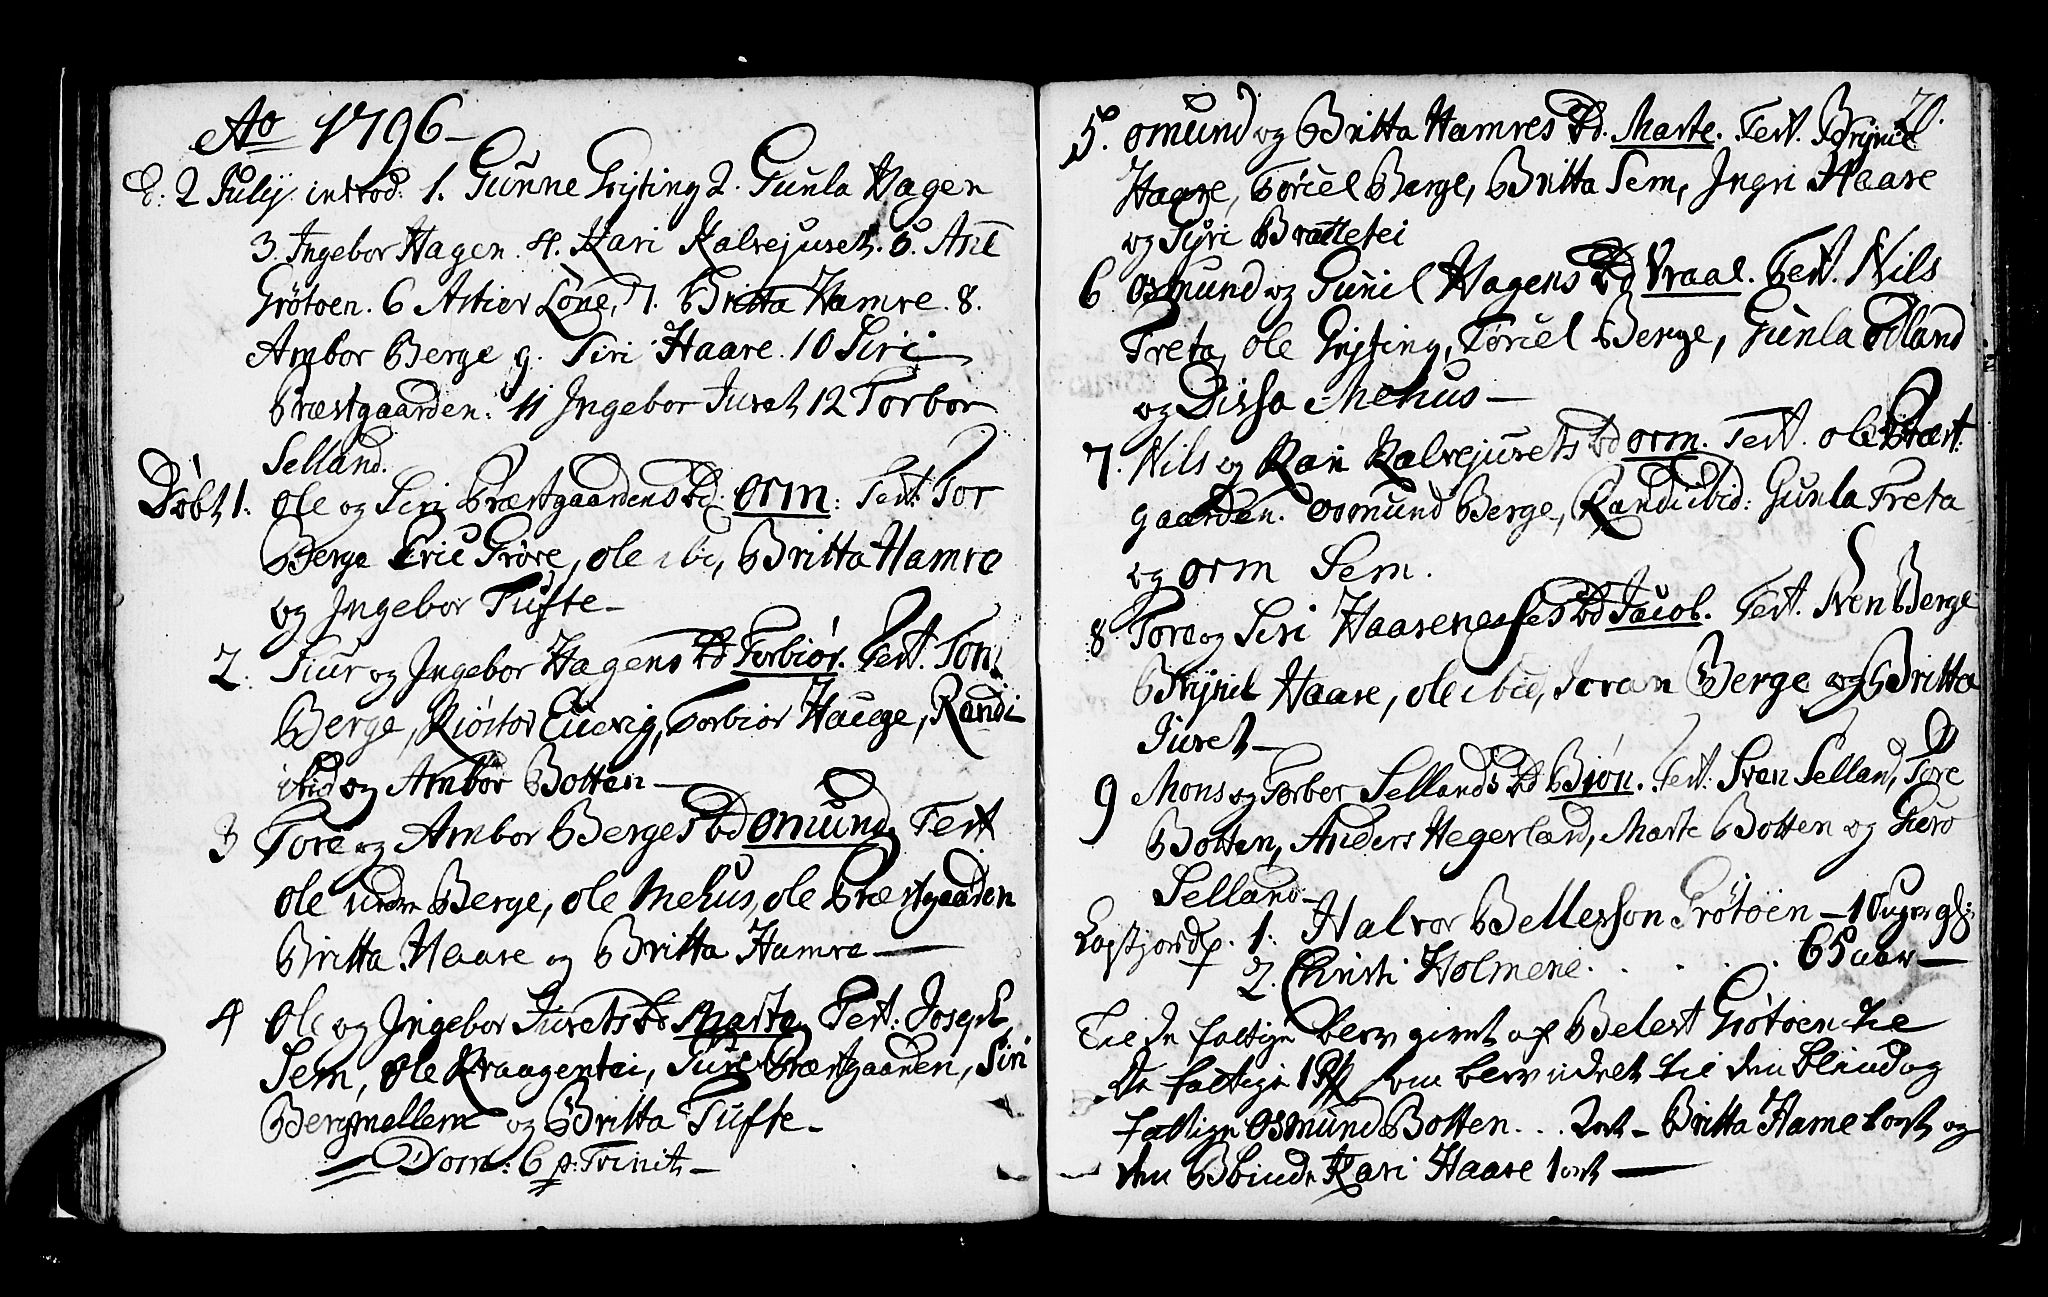 Ao 1796 -
E: 2 Julij introd: 1. Gunne Grijting 2. Gunla Hagen
3. Ingebor Hagen. 4. Kari Kalvejuret. 5. Ane
Grøtoen. 6 Astior Løne, 7. Britta Hamre. 8.
Ambor Berge 9. Siri Haare. 10 Siri
Præstgaarden: 11 Ingebor Juret 12 Torbor
Selland.
Døbt 1. Ole og Siri Præstgaardens bd: Orm: Test: Tor
Berge Eric Grøre, ole ibi, Britta Hamre
og Ingebor Tufte -
2. Siur og Ingebor Hagens bd Torbiør. Test. Tor
Berge, Torbior Hauge, Randi
ibid og Ambor Botten -
3 Tore og Ambor Berges bd Omund, Test
ole Berge, ole Mehus, ole Præstgaarden
Britta Haare og Britta Hamre -
4 Ole og Ingebor Jurets bd Marta, Test: Joseph
Sem, Ole Kraagentei, Præstgaarden, Siri
Bergmellem og Britta Tufte -
Dom: 6 p: Trinit -
20.
5. Omund og Britta Hamres bd. Marte. Test. Brijnil
Haare, Torcel Berge, Britta Sem, Ingri Haare
og Syri Brattetei
6 Osmund og Guril Hagens bd Vraal. Test. Nils
Treta, ole Grijting, Torcel Berge, Gunla Odland
og Dissa Mehus -
7. Nils og Kari Kalvejurets bd Orm. Test. ole Præst
gaarden. Osmund Berge, Randi ibid: Gunla Treta
og Orm Sem.
8 Tore og Siri Haarenesses bd Jacob. Test. Sven Berge
Brijnil Haare, ole ibid, Joran Berge og Britta
Juret -
9 Mons og Torbor Sellands bd Biøn. Test: Sven Selland, Tore
Botten, Anders Hegerland, Marte Botten og Guro
Selland -
1. Halvor Bellesson Grøtoen - 10 uger gl:
2. Christi Holmene. . . . . 65 aar -
Til de fattige blev givet af Belest Grøtoen til
De fattige som blev til den blind og
fattige Osmund Botten . . . 2ort - Britta Hamre 1ort og
den Blinde Kari Haare 1ort -